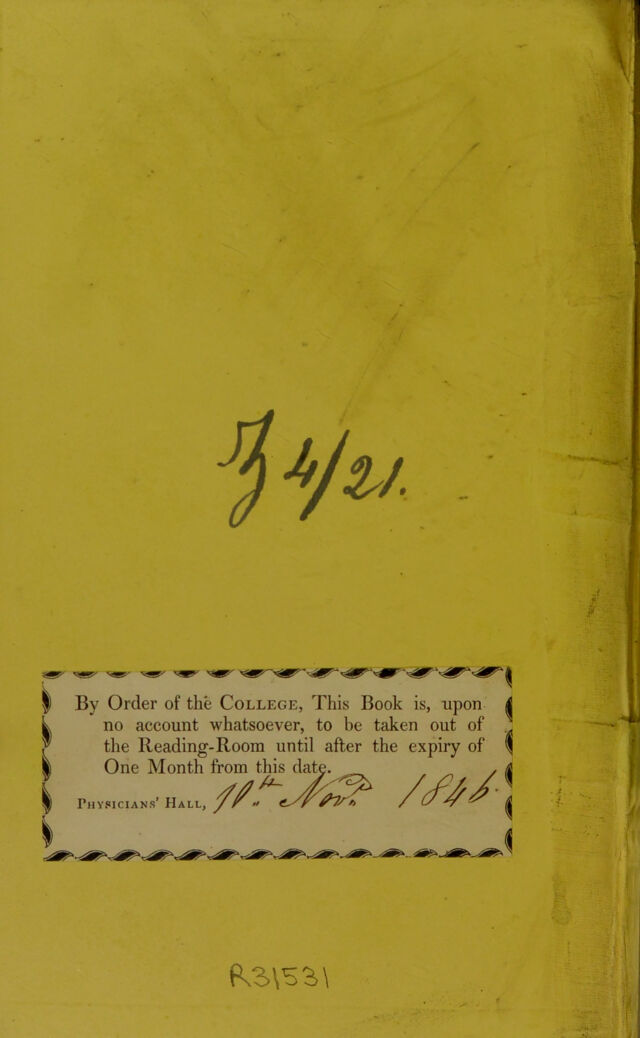 4/21.
By Order of the COLLEGE, This Book is, upon
no account whatsoever, to be taken out of
the Reading-Room until after the expiry of
One Month from this date.
PHYSICIANS' HALL, 10th Novr. 1846.
R31531